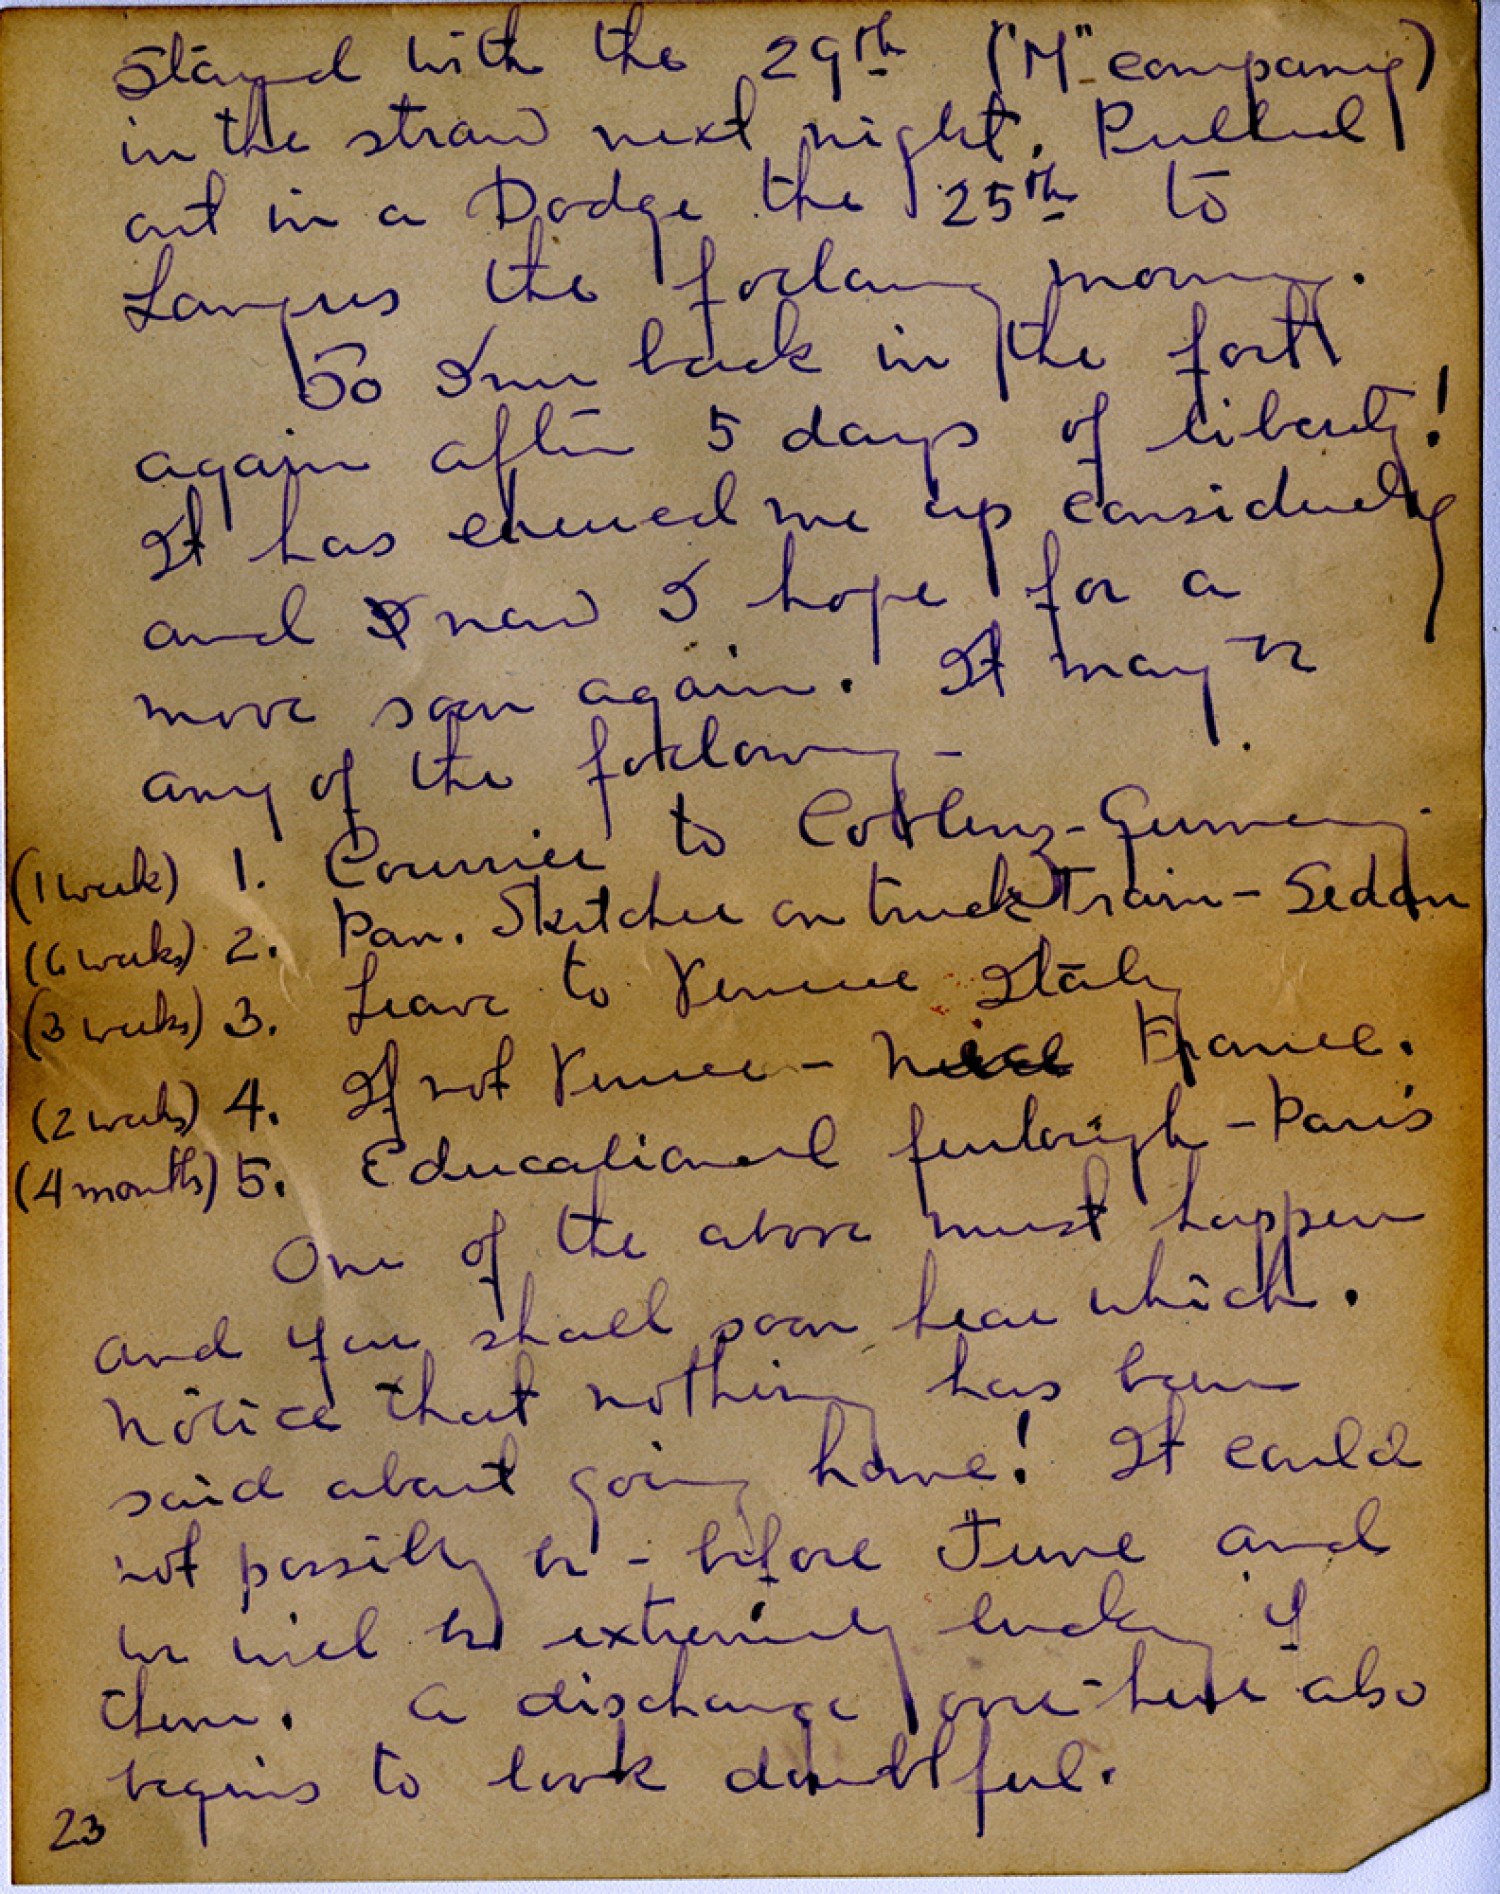 Stayed with the 29th ("M" company)
in the straw next night. Pulled
out in a Dodge the 25th to
Langres the following morning.
So I'm back in the fort
again after 5 days of liberty!
It has cheered me up considerably
and now I hope for a
move soon again. It may be
any of the following –
(1 week) 1. Courrier to Coblenz – Germany.
(6 weeks) 2. Pan. Sketcher on truck Train – Sedan
(3 weeks) 3. Leave to Venice Italy
(2 weeks) 4. If not Venice – Nice France.
(4 months) 5. Educational furlough – Paris
One of the above must happen
and you shall soon hear which.
Notice that nothing has been
said about going home! It could
not possibly be – before June and
we will be extremely lucky if
then. A discharge over-here also
begins to look doubtful.
23